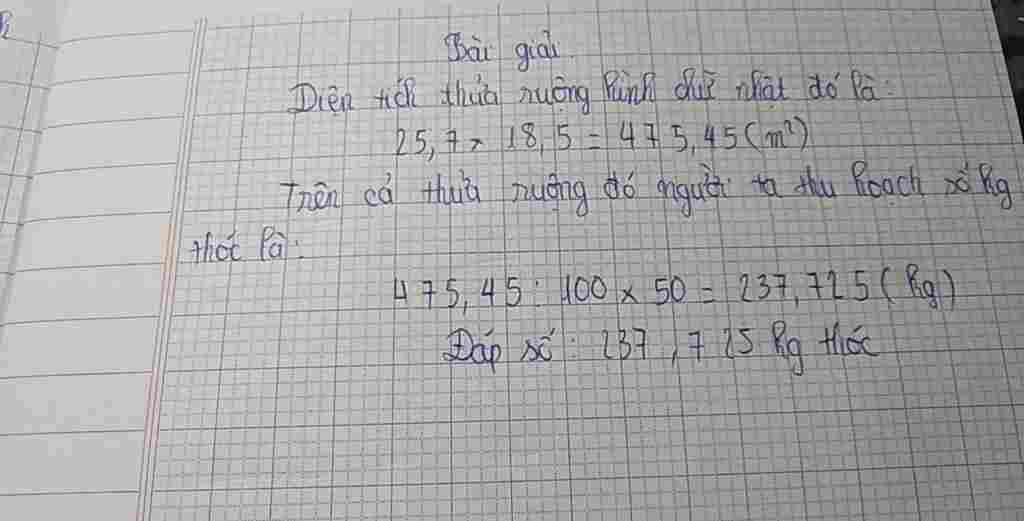 Bài giải
Diện tích thửa ruộng hình chữ nhật đó là:
25,7 x 18,5 = 475,45 (m²)
Trên cả thửa ruộng đó người ta thu hoạch số kg
thóc là:
475,45 : 100 x 50 = 237,725 (kg)
Đáp số: 237,725 kg thóc